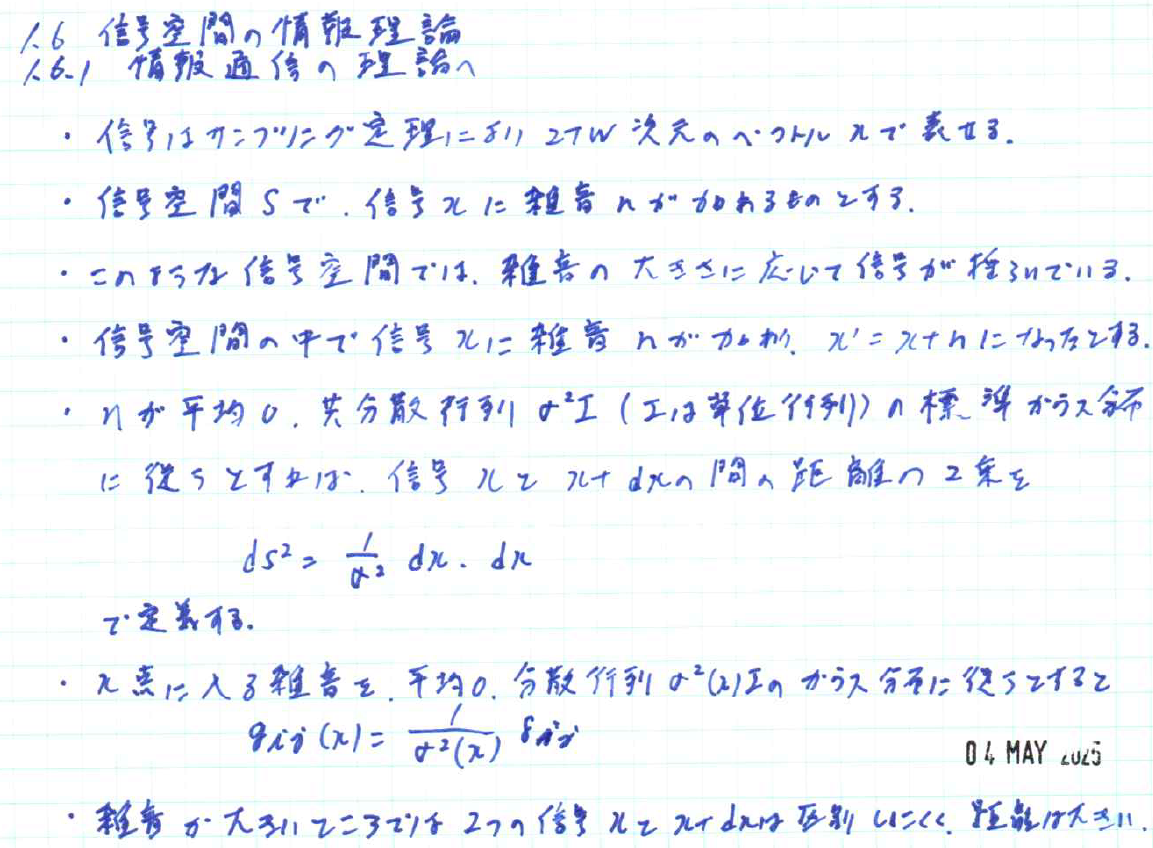 1.6 信号空間の情報理論
1.6.1 情報通信の理論へ
・信号はサンプリング定理により 2TW 次元のベクトル x で表せる.
・信号空間 S で、信号 x に雑音 n が加わるものとする.
・このような信号空間では、雑音の大きさに応じて信号が揺らいでいる.
・信号空間の中で信号 x に雑音 n が加わり、x' = x+n になったとする.
・n が平均 0、共分散行列 σ²I (I は単位行列) の標準ガウス分布
に従うとすれば、信号 x と x+dx の間の距離の2乗を
ds² = 1/σ² dx・dx
で定義する.
・x点に入る雑音を、平均0、分散行列 σ²(x)I の ガウス分布に従うとすると
gij(x) = 1/σ²(x) δij
04 MAY 2025
・雑音が大きいところでは 2つの信号 x と x+dx は区別しにくく、距離は大きい.